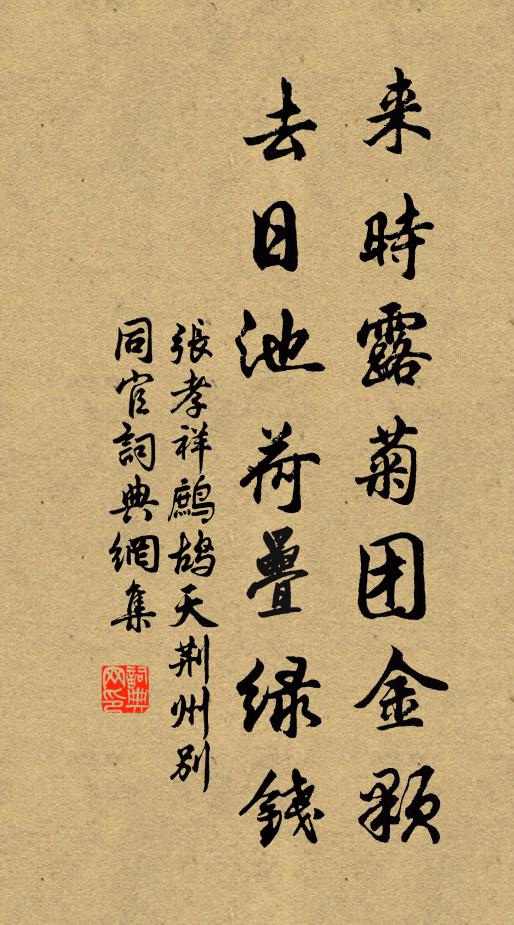 来時露菊团金顆
去日池荷疊緑錢
張孝祥鷓鴣天荆州别
同官詞典網集
詞典網印